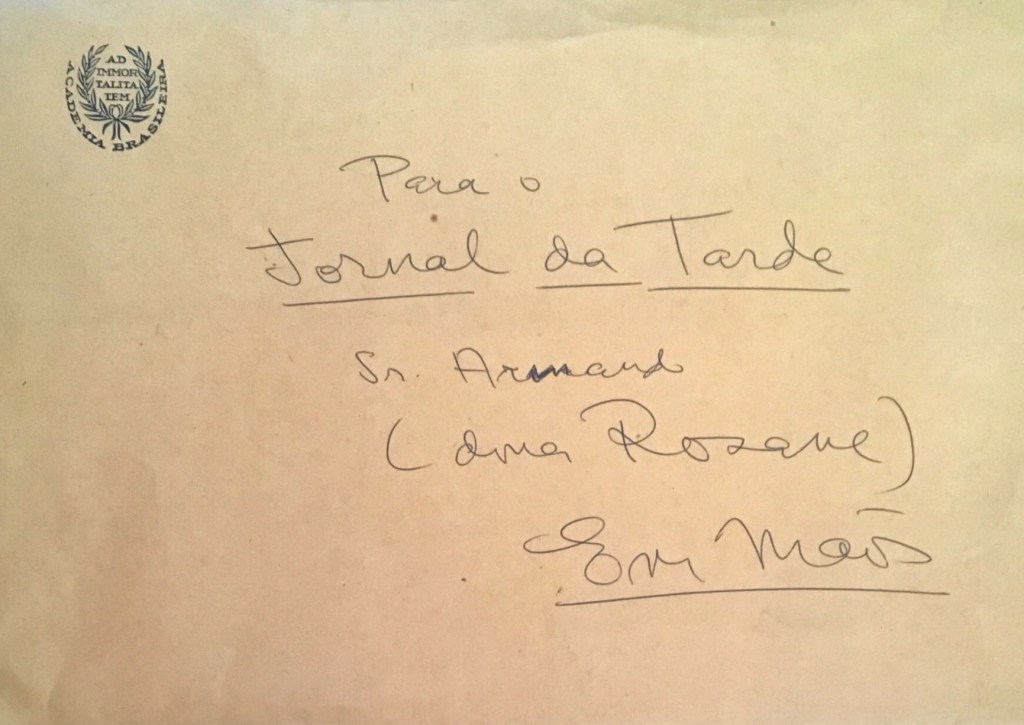 AD
IMMOR
TALITA
TEM
ACADEMIA BRASILEIRA
Para o
Jornal da Tarde
Sr. Armando
(dona Rosane)
Em Mãos